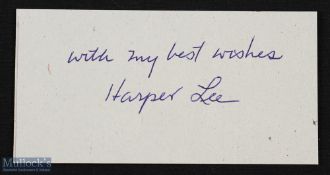 with my best wishes
Harper Lee
Mullock's